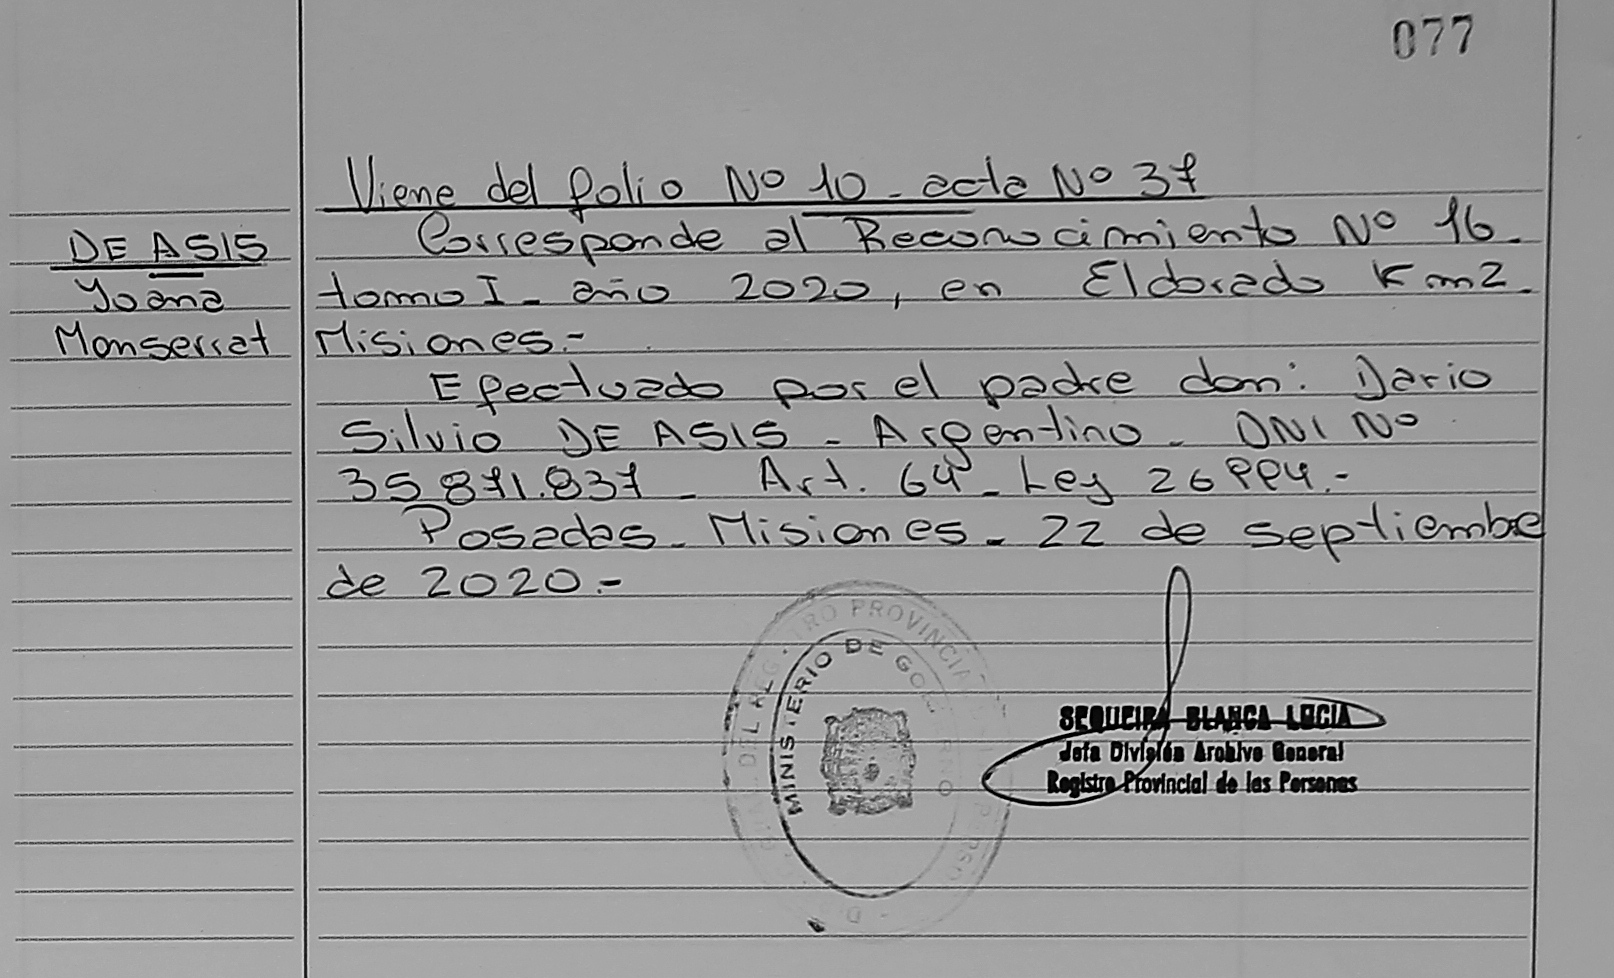 077
Viene del folio Nº 10 - acta Nº 37
DE ASIS
Yoana
Monserrat
Corresponde al Reconocimiento Nº 16 -
tomo I - año 2020, en Eldorado Km2.
Misiones.-
Efectuado por el padre don: Dario
Silvio DE ASIS - Argentino - DNI Nº
35 871.837 - Art. 64 - Ley 26994.-
Posadas - Misiones - 22 de septiembre
de 2020.-
MINISTERIO DE GOBIERNO
PROVINCIAL
SEQUEIRA BLANCA LUCIA
Jefa División Archivo General
Registro Provincial de las Personas